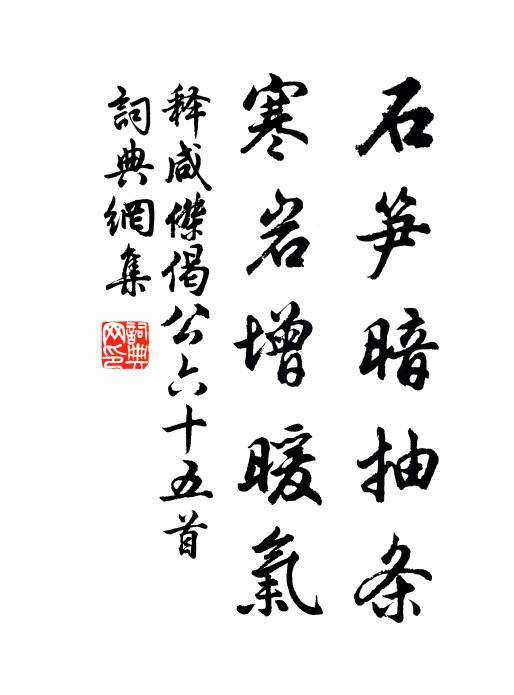 石笋暗抽条
寒岩增暖氣
释咸傑偈公六十五首
詞典網集
詞典網印